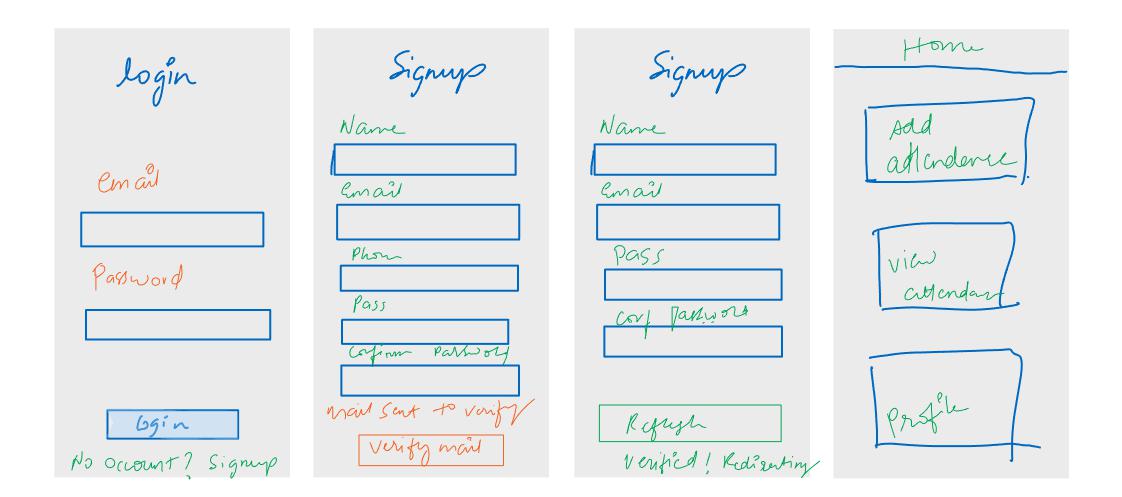 login
Email
Password
Login
No account? Signup
Signup
Name
Email
Phon
Pass
Confirm Password
Mail sent to verify
Verify mail
Signup
Name
Email
Pass
Conf Password
Refresh
Verified! Redirecting
Home
Add
attendence
View
attendance
Profile